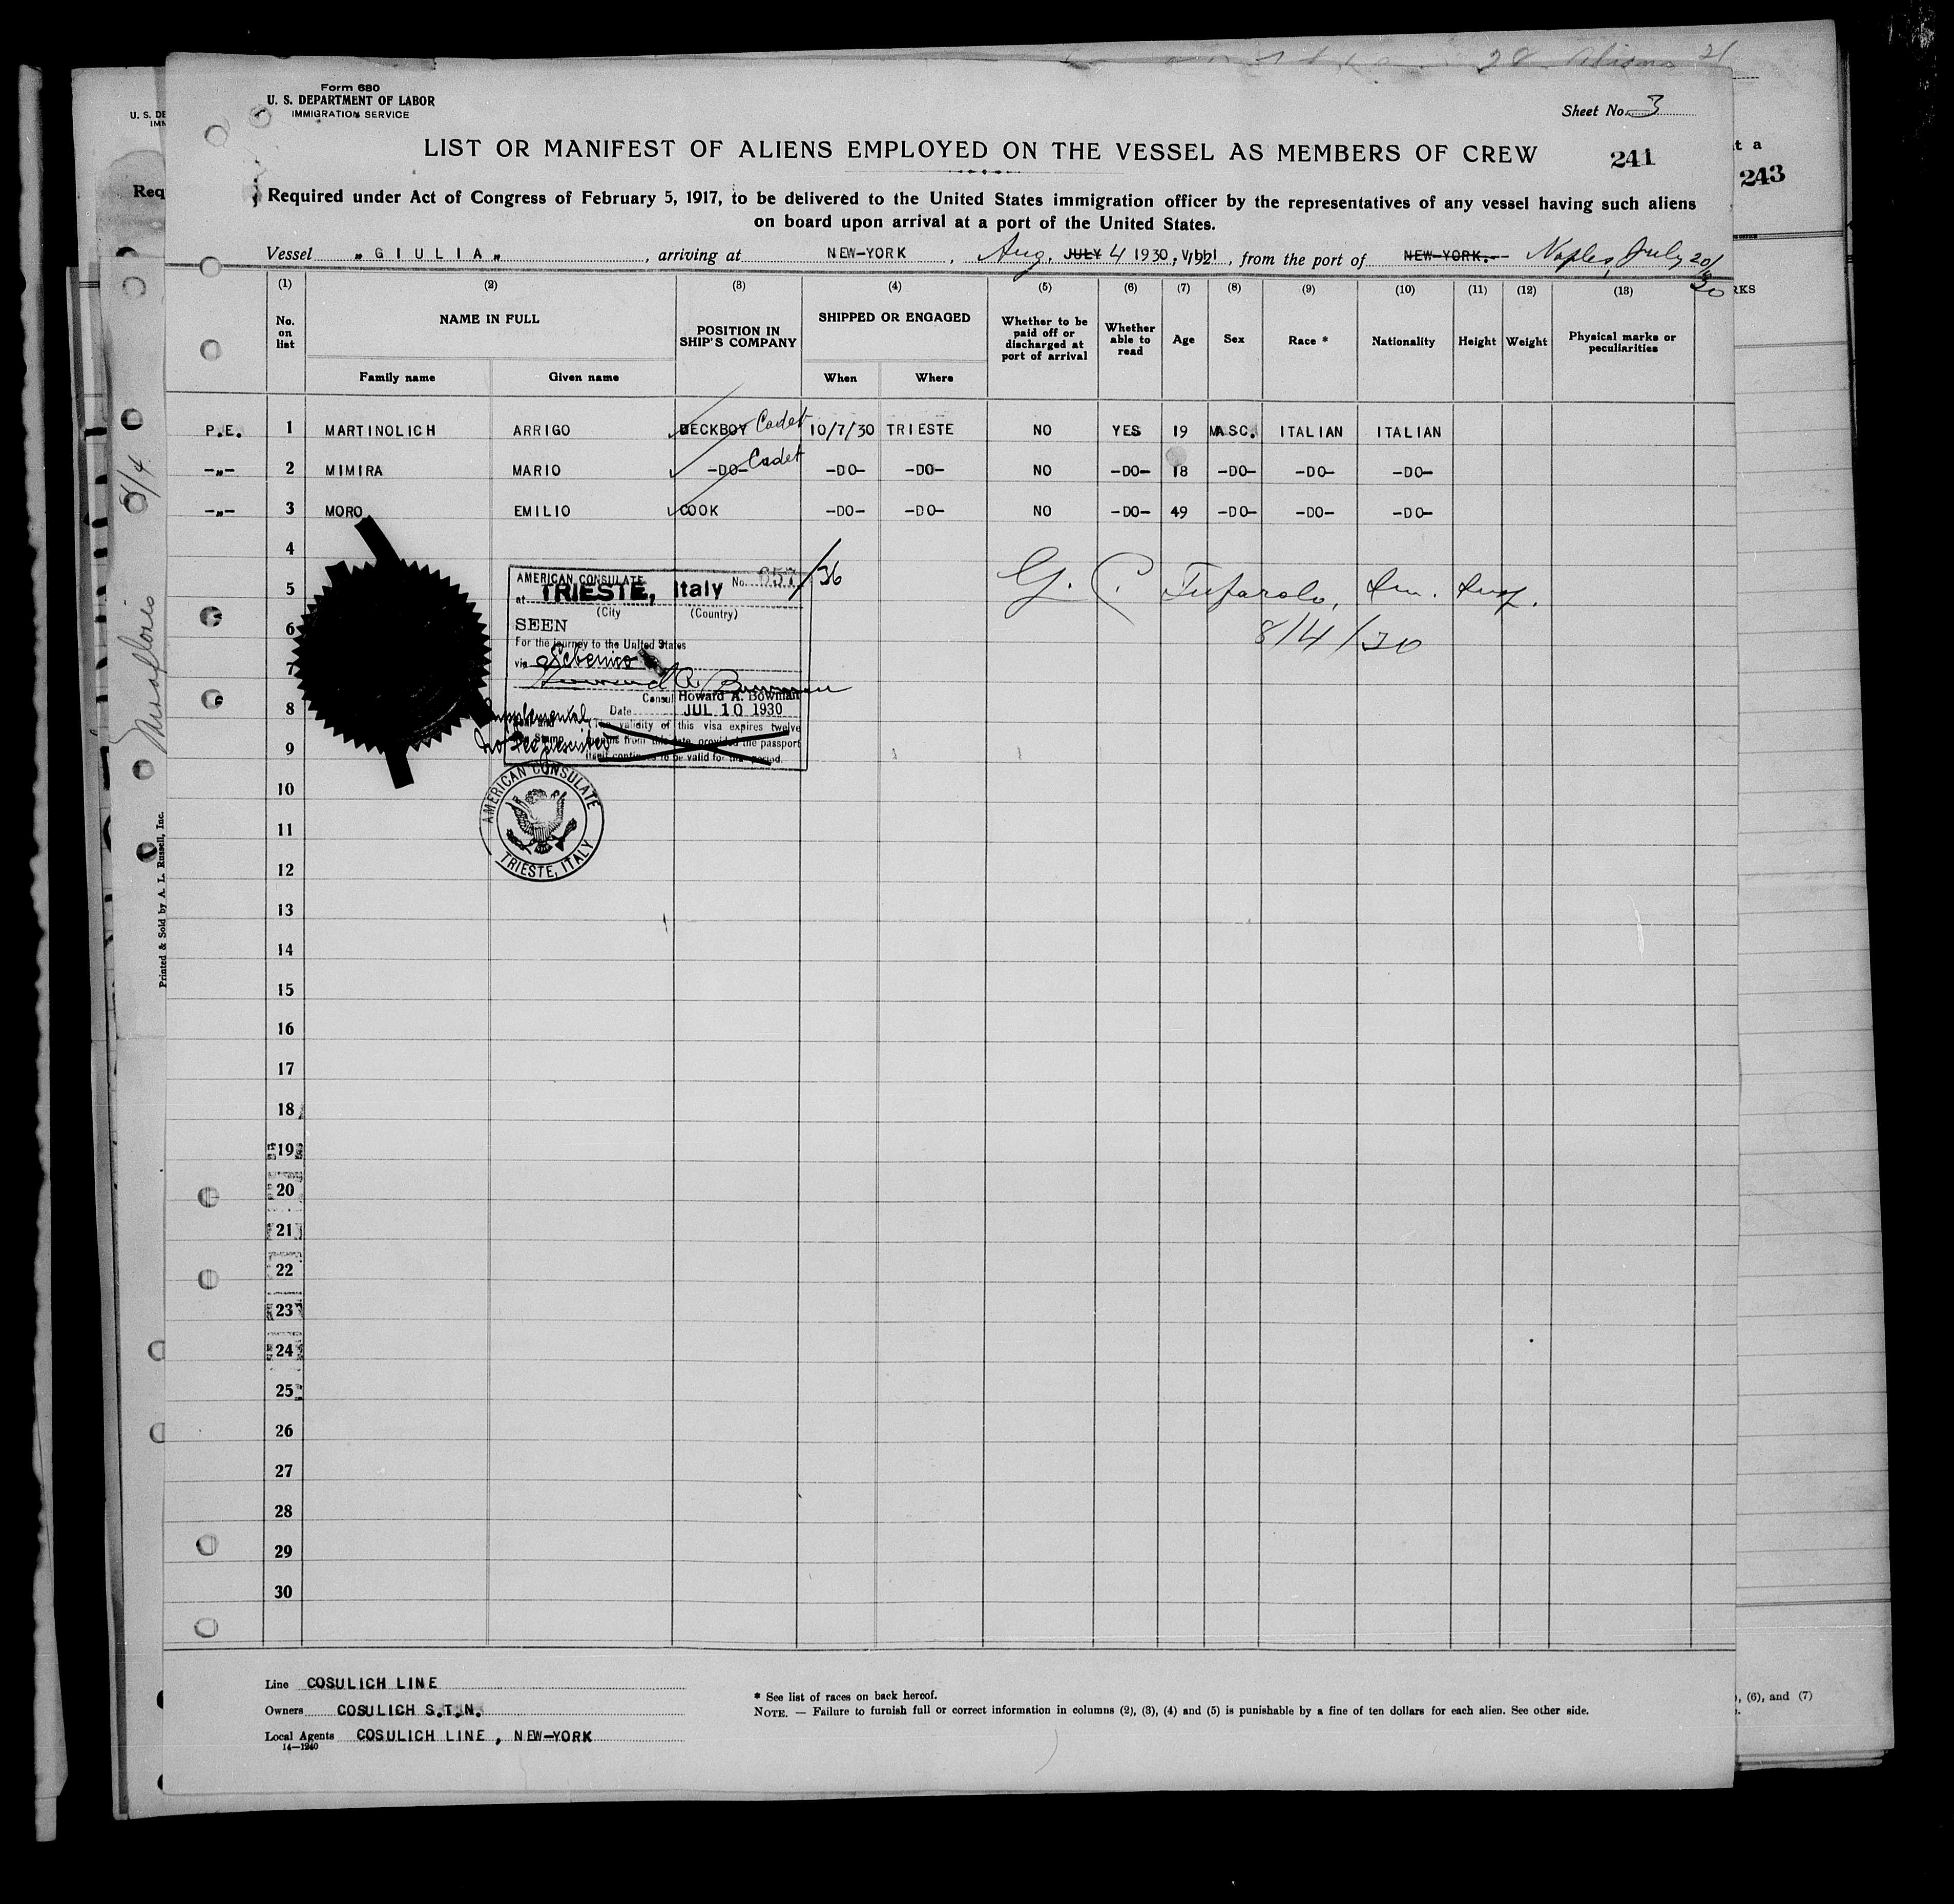 28 Aliens 21
Form 680
U. S. DEPARTMENT OF LABOR
IMMIGRATION SERVICE
Sheet No. 3
LIST OR MANIFEST OF ALIENS EMPLOYED ON THE VESSEL AS MEMBERS OF CREW
241
243
Required under Act of Congress of February 5, 1917, to be delivered to the United States immigration officer by the representatives of any vessel having such aliens
on board upon arrival at a port of the United States.
Vessel „ G I U L I A „ , arriving at NEW-YORK , Aug. JULY 4 1930, , from the port of NEW-YORK.- Naples, July 20/30
(1) (2) (3) (4) (5) (6) (7) (8) (9) (10) (11) (12) (13)
No. on list NAME IN FULL POSITION IN SHIP'S COMPANY SHIPPED OR ENGAGED Whether to be paid off or discharged at port of arrival Whether able to read Age Sex Race * Nationality Height Weight Physical marks or peculiarities
Family name Given name When Where
P.E. 1 MARTINOLICH ARRIGO DECKBOY Cadet 10/7/30 TRIESTE NO YES 19 MASC. ITALIAN ITALIAN
-„- 2 MIMIRA MARIO -DO- Cadet -DO- -DO- NO -DO- 18 -DO- -DO- -DO-
-„- 3 MORO EMILIO COOK -DO- -DO- NO -DO- 49 -DO- -DO- -DO-
4
5
6
7
8
9
10
11
12
13
14
15
16
17
18
19
20
21
22
23
24
25
26
27
28
29
30
AMERICAN CONSULATE No. 657/36
at TRIESTE, Italy
(City (Country)
SEEN
For the journey to the United States
via
Howard A. Bowman
Consul Howard A. Bowman
Date JUL 10 1930
Supplemental
No fee prescribed
(The validity of this visa expires twelve
months from this date provided the passport
itself continues to be valid for that period.
AMERICAN CONSULATE
TRIESTE, ITALY
G. C. Tufarolo, Im. Insp.
8/4/30
8/4
Miraflores
Printed & Sold by A. L. Russell, Inc.
Line COSULICH LINE
Owners COSULICH S.T.N.
Local Agents COSULICH LINE , NEW-YORK
14-1240
* See list of races on back hereof.
NOTE. — Failure to furnish full or correct information in columns (2), (3), (4) and (5) is punishable by a fine of ten dollars for each alien. See other side.
(6), and (7)